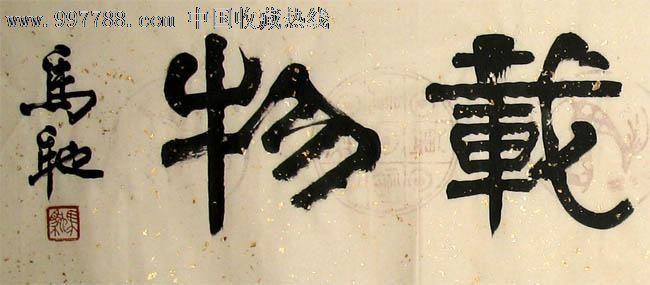 www.997788.com 中国收藏热线
載物
馬馳